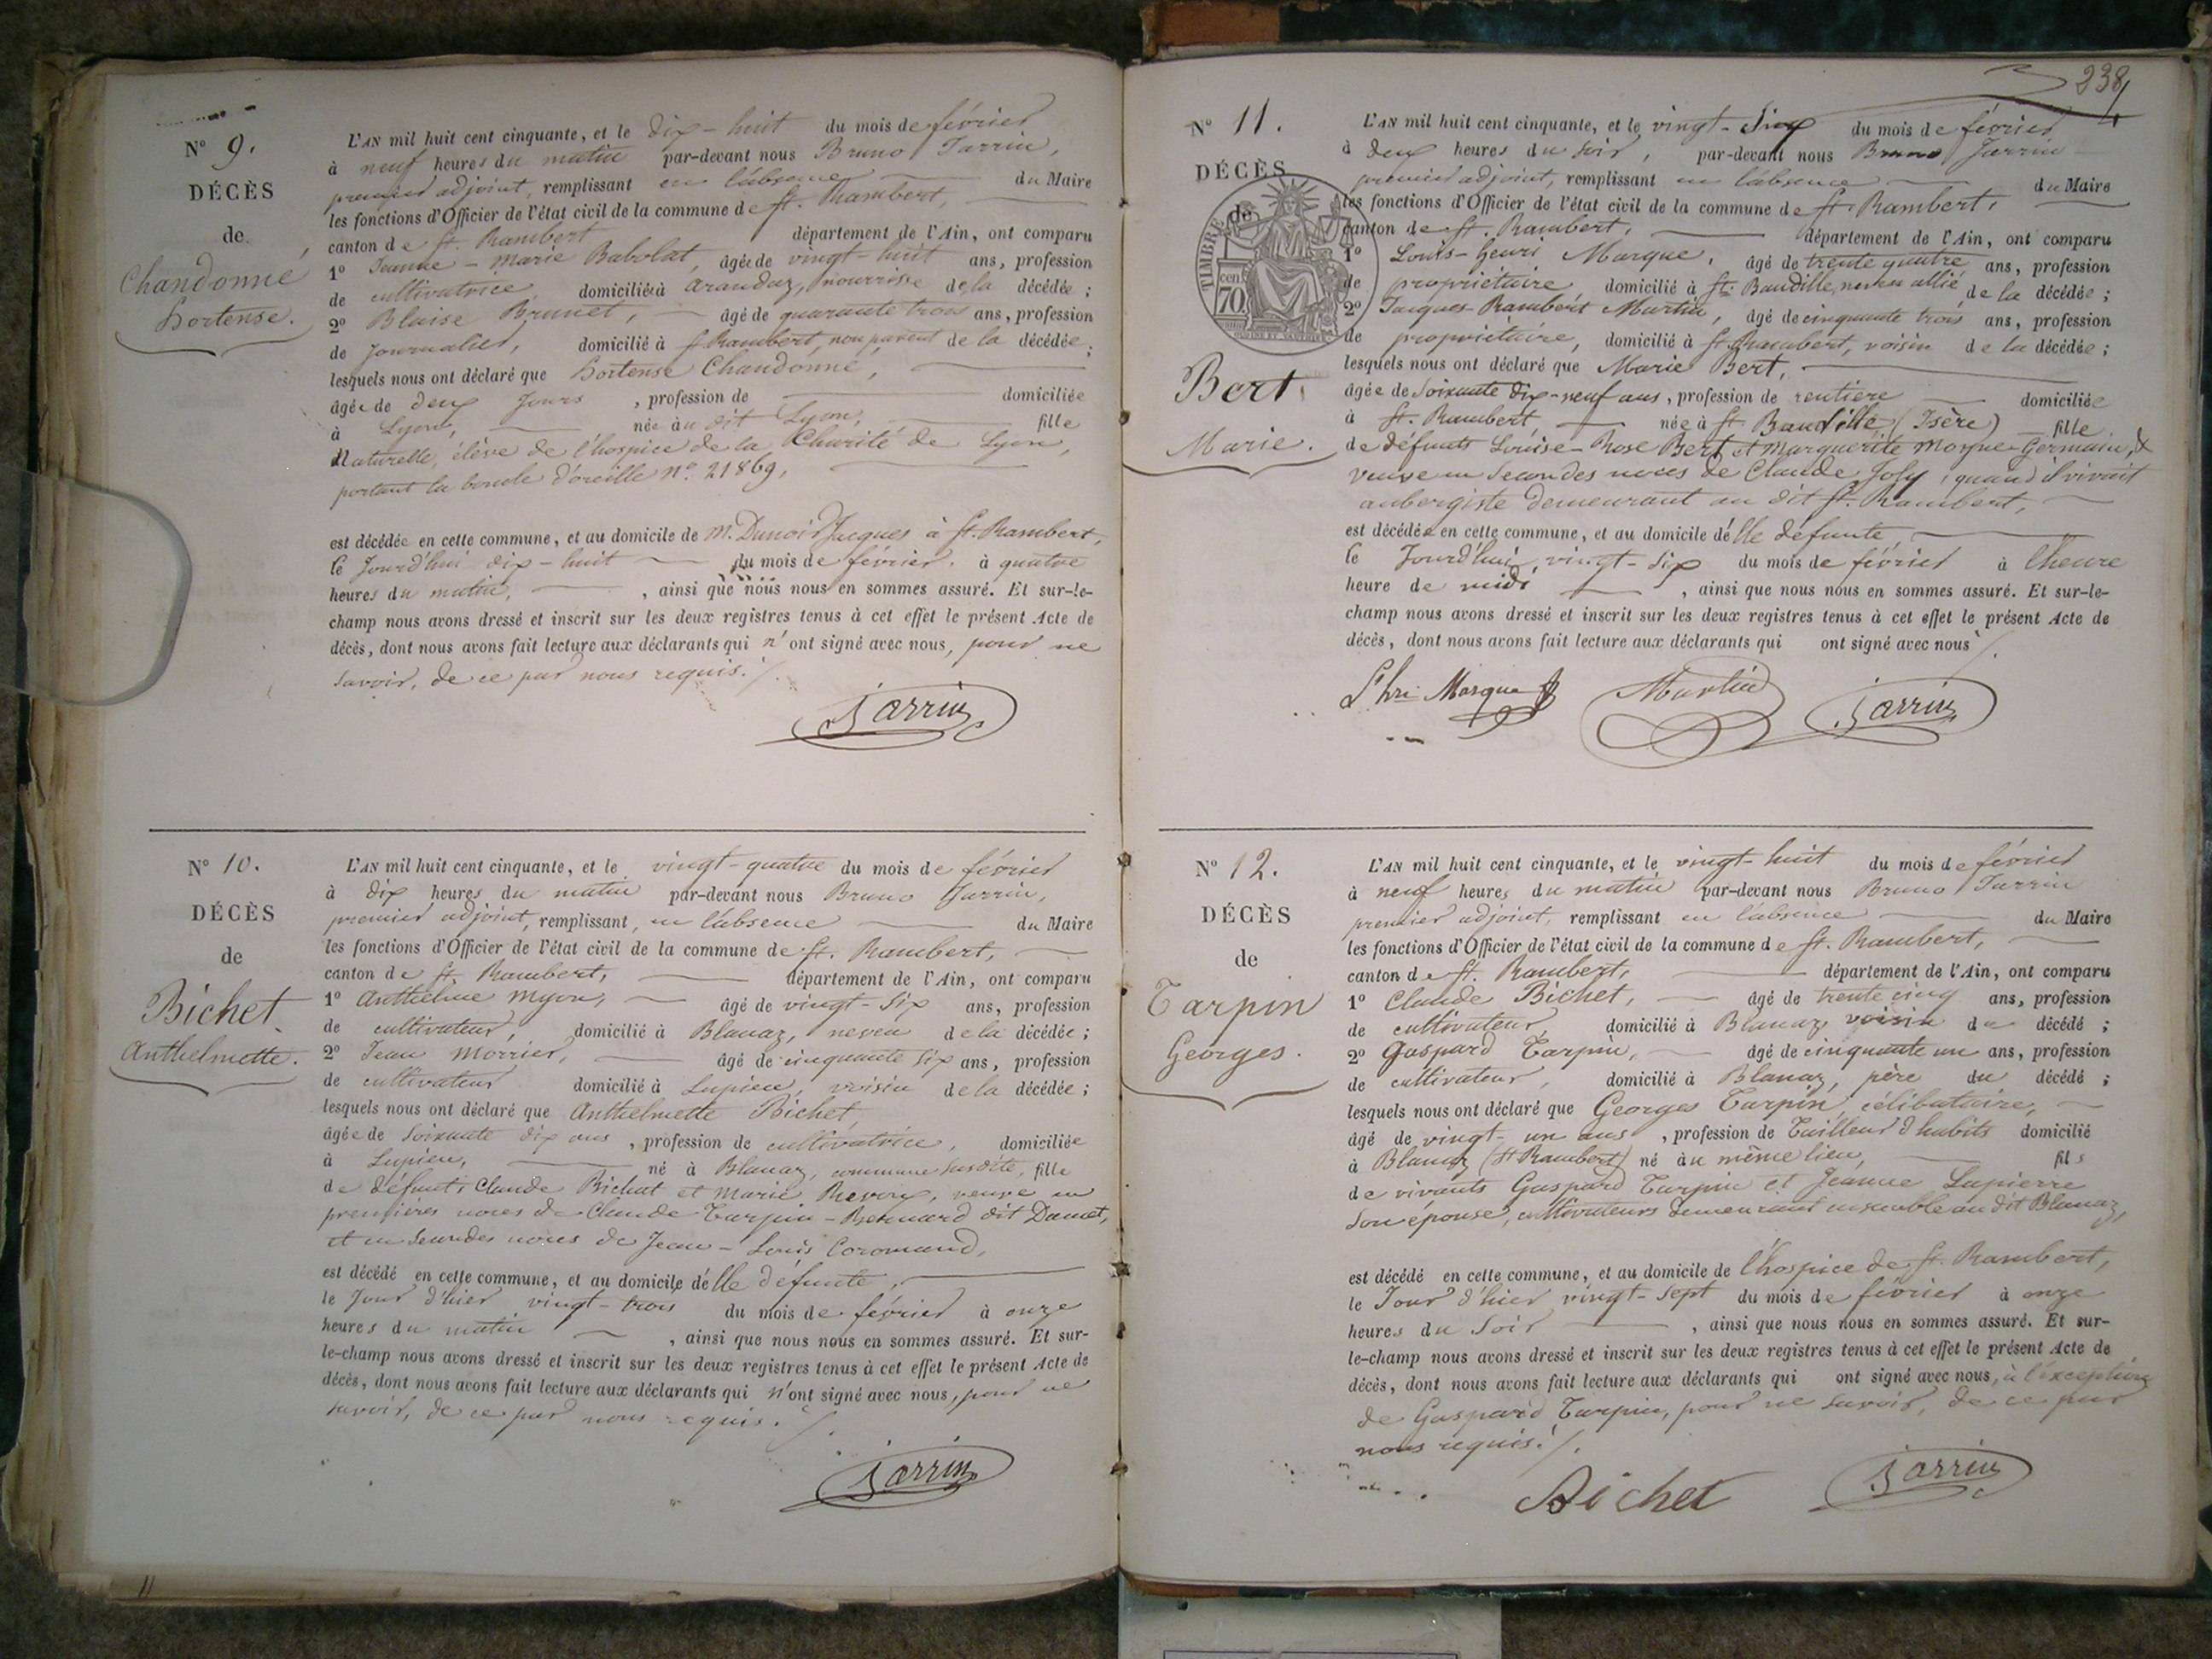 N° 9.
DÉCÈS
de
Chandonné
Hortense.
L'AN mil huit cent cinquante, et le dix-huit du mois de février
à neuf heures du matin par-devant nous Bruno Jarrin,
premier adjoint, remplissant en l'absence du Maire
les fonctions d'Officier de l'état civil de la commune de St. Rambert,
canton de St. Rambert département de l'Ain, ont comparu
1° Jeanne-Marie Babolat, âgée de vingt-huit ans, profession
de cultivatrice, domiciliée à arandaz, nourrisse de la décédée ;
2° Blaise Brunet, âgé de quarante trois ans, profession
de Journalier, domicilié à St Rambert, non parent de la décédée ;
lesquels nous ont déclaré que Hortense Chandonné,
âgée de deux Jours , profession de domiciliée
à Lyon, née au dit Lyon, fille
Naturelle, élève de l'hospice de la Charité de Lyon,
portant la boucle d'oreille n°. 21869,
est décédée en cette commune, et au domicile de M. Dunoir Jacques à St. Rambert,
le Jourd'hui dix-huit du mois de février, à quatre
heures du matin, , ainsi que nous nous en sommes assuré. Et sur-le-
champ nous avons dressé et inscrit sur les deux registres tenus à cet effet le présent Acte de
décès, dont nous avons fait lecture aux déclarants qui n'ont signé avec nous, pour ne
savoir, de ce par nous requis./.
Jarrin
N° 10.
DÉCÈS
de
Bichet
Anthelmette.
L'AN mil huit cent cinquante, et le vingt-quatre du mois de février
à dix heures du matin par-devant nous Bruno Jarrin,
premier adjoint, remplissant, en l'absence du Maire
les fonctions d'Officier de l'état civil de la commune de St. Rambert,
canton de St. Rambert, département de l'Ain, ont comparu
1° Anthelme Myon, âgé de vingt-six ans, profession
de cultivateur, domicilié à Blanaz, neveu de la décédée ;
2° Jean Morrier, âgé de cinquante six ans, profession
de cultivateur domicilié à Lupieu, voisin de la décédée ;
lesquels nous ont déclaré que Anthelmette Bichet,
âgée de soixante dix ans , profession de cultivatrice, domiciliée
à Lupieu, né à Blanaz, commune susdite, fille
de défunts Claude Bichat et Marie , veuve en
premières noces de Claude Tarpin-Bernard dit Damet,
et en secondes noces de Jean-Louis Coromand,
est décédé en cette commune, et au domicile délle défunte,
le Jour d'hier vingt-trois du mois de février à onze
heures du matin , ainsi que nous nous en sommes assuré. Et sur-
le-champ nous avons dressé et inscrit sur les deux registres tenus à cet effet le présent Acte de
décès, dont nous avons fait lecture aux déclarants qui n'ont signé avec nous, pour ne
savoir, de ce par nous requis./.
Jarrin
238
N° 11.
DÉCÈS
de
TIMBRE
cent
70
Bert
Marie.
L'AN mil huit cent cinquante, et le vingt-six du mois de février
à deux heures du soir, par-devant nous Bruno Jarrin
premier adjoint, remplissant en l'absence du Maire
les fonctions d'Officier de l'état civil de la commune de St. Rambert,
canton de St. Rambert, département de l'Ain, ont comparu
1° Louis-Henri Marque, âgé de trente quatre ans, profession
de propriétaire domicilié à St. Baudille, neveu allié de la décédée ;
2° Jacques Rambert Martin, âgé de cinquante trois ans, profession
de propriétaire, domicilié à St. Rambert, voisin de la décédée ;
lesquels nous ont déclaré que Marie Bert,
âgée de soixante dix-neuf ans, profession de rentière domiciliée
à St. Rambert, née à St. Baudille (Isère) fille
de défunts Louise-Rose Bert et Marguerite Morgue-Germain, &
veuve en secondes noces de Claude Joly, quand il vivait
aubergiste demeurant au dit St. Rambert,
est décédée en cette commune, et au domicile délle défunte,
le Jourd'hui, vingt-six du mois de février à l'heure
heure de midi , ainsi que nous nous en sommes assuré. Et sur-le-
champ nous avons dressé et inscrit sur les deux registres tenus à cet effet le présent Acte de
décès, dont nous avons fait lecture aux déclarants qui ont signé avec nous /.
Ls hri Marque Martin Jarrin
N° 12.
DÉCÈS
de
Tarpin
Georges.
L'AN mil huit cent cinquante, et le vingt-huit du mois de février
à neuf heures du matin par-devant nous Bruno Jarrin
premier adjoint, remplissant en l'absence du Maire
les fonctions d'Officier de l'état civil de la commune de St. Rambert,
canton de St. Rambert, département de l'Ain, ont comparu
1° Claude Bichet, âgé de trente cinq ans, profession
de cultivateur, domicilié à Blanaz voisin du décédé ;
2° Gaspard Tarpin, âgé de cinquante un ans, profession
de cultivateur, domicilié à Blanaz, père du décédé ;
lesquels nous ont déclaré que Georges Tarpin, célibataire,
âgé de vingt-un ans , profession de Tailleur d'habits domicilié
à Blanaz (St Rambert) né au même lieu, fils
de vivants Gaspard Tarpin et Jeanne Lapierre
son épouse, cultivateurs demeurant ensemble au dit Blanaz,
est décédé en cette commune, et au domicile de l'hospice de St. Rambert,
le Jour d'hier vingt-sept du mois de février à onze
heures du soir , ainsi que nous nous en sommes assuré. Et sur-
le-champ nous avons dressé et inscrit sur les deux registres tenus à cet effet le présent Acte de
décès, dont nous avons fait lecture aux déclarants qui ont signé avec nous, à l'exception
de Gaspard Tarpin, pour ne savoir, de ce par
nous requis./.
Bichet Jarrin